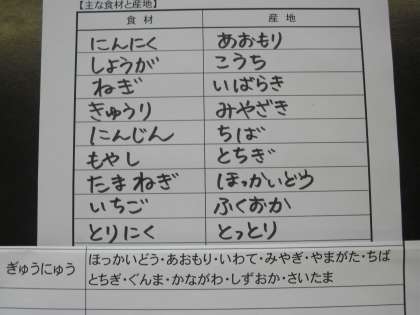 【主な食材と産地】
食材 産地
にんにく あおもり
しょうが こうち
ねぎ いばらき
きゅうり みやざき
にんじん ちば
もやし とちぎ
たまねぎ ほっかいどう
いちご ふくおか
とりにく とっとり
ぎゅうにゅう ほっかいどう・あおもり・いわて・みやぎ・やまがた・ちば
とちぎ・ぐんま・かながわ・しずおか・さいたま